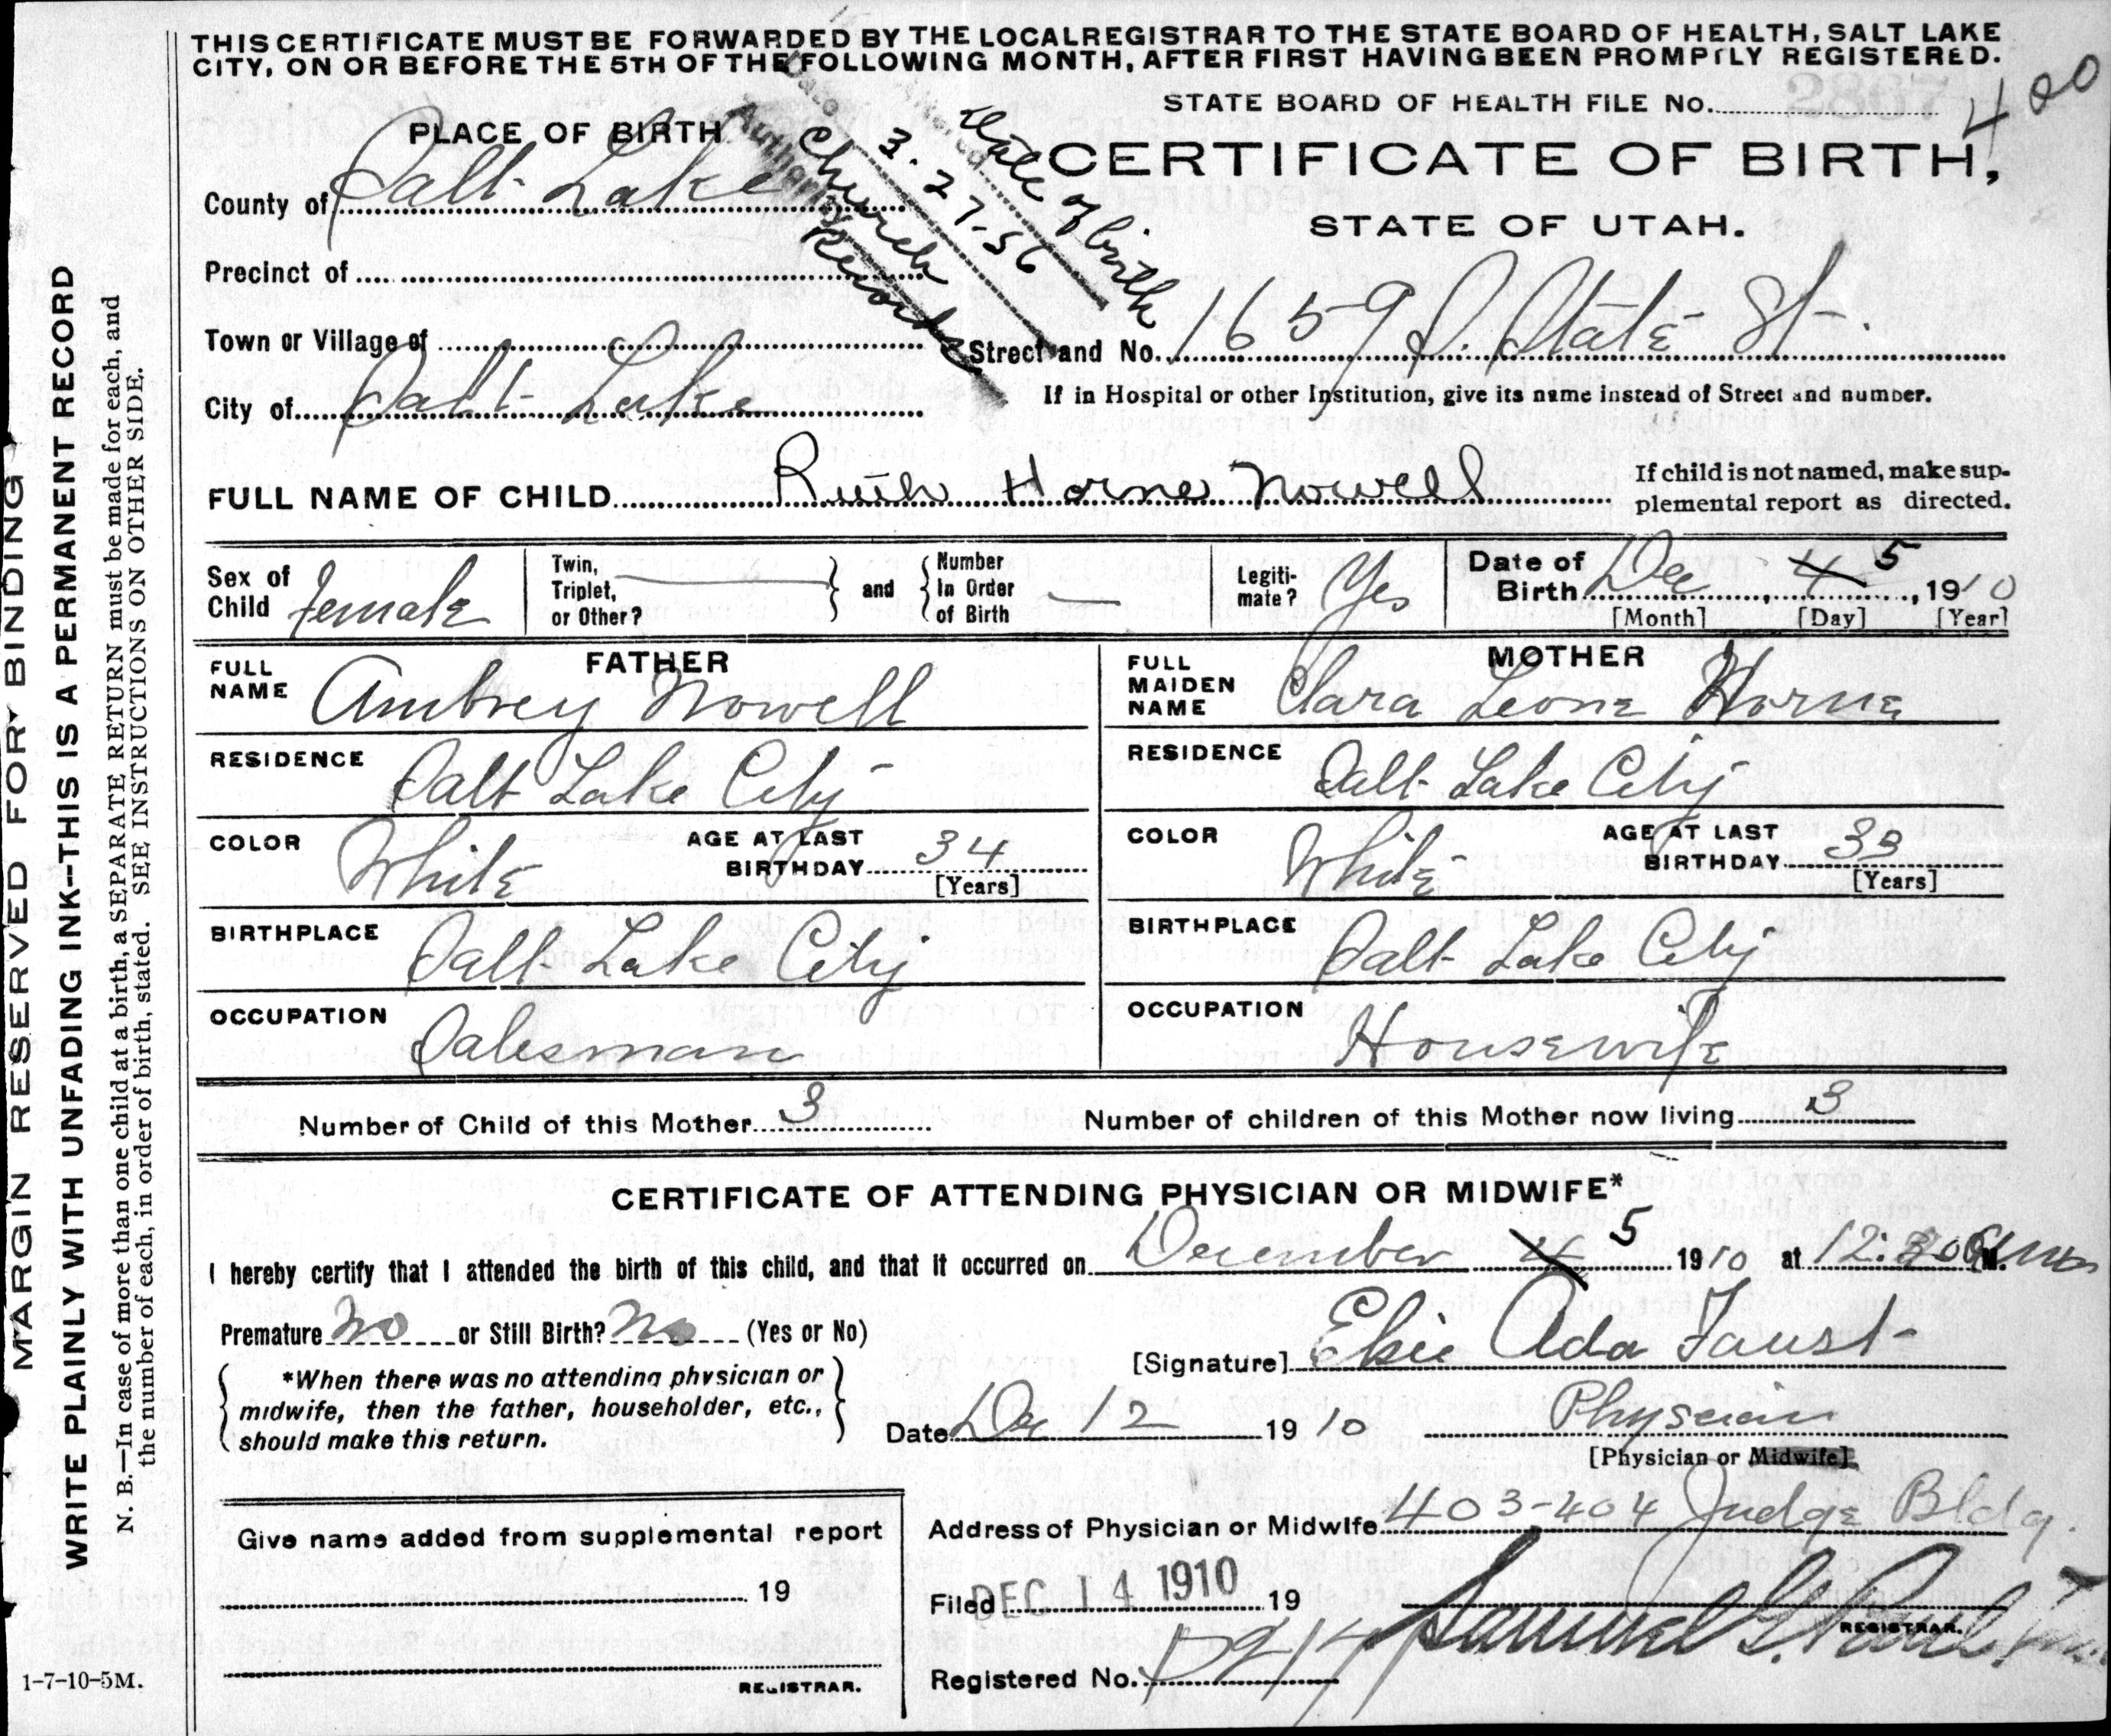 THIS CERTIFICATE MUST BE FORWARDED BY THE LOCAL REGISTRAR TO THE STATE BOARD OF HEALTH, SALT LAKE
CITY, ON OR BEFORE THE 5TH OF THE FOLLOWING MONTH, AFTER FIRST HAVING BEEN PROMPTLY REGISTERED.
STATE BOARD OF HEALTH FILE No. 2867
400
PLACE OF BIRTH
CERTIFICATE OF BIRTH,
STATE OF UTAH.
Date Altered 3.27-56
Date of birth
Authority Church Records
County of Salt Lake
Precinct of
Town or Village of
Street and No. 1659 S. State St.
City of Salt Lake
If in Hospital or other Institution, give its name instead of Street and number.
FULL NAME OF CHILD Ruth Horne Nowell
If child is not named, make sup-
plemental report as directed.
Sex of Child female
Twin, Triplet, or Other? — and Number In Order of Birth —
Legiti-mate? Yes
Date of Birth Dec 4 5, 1910
[Month] [Day] [Year]
FATHER
FULL NAME Aubrey Nowell
RESIDENCE Salt Lake City
COLOR White AGE AT LAST BIRTHDAY 34 [Years]
BIRTHPLACE Salt Lake City
OCCUPATION Salesman
MOTHER
FULL MAIDEN NAME Clara Leone Horne
RESIDENCE Salt Lake City
COLOR White AGE AT LAST BIRTHDAY 33 [Years]
BIRTHPLACE Salt Lake City
OCCUPATION Housewife
Number of Child of this Mother 3 Number of children of this Mother now living 3
CERTIFICATE OF ATTENDING PHYSICIAN OR MIDWIFE*
I hereby certify that I attended the birth of this child, and that it occurred on December 4 5 1910 at 12:30 M.
Premature No or Still Birth? No (Yes or No)
[Signature] Elsie Ada Faust
*When there was no attending physician or
midwife, then the father, householder, etc.,
should make this return.
Date Dec 12 1910 Physician
[Physician or Midwife]
Give name added from supplemental report
19
REGISTRAR.
Address of Physician or Midwife 403-404 Judge Bldg.
Filed DEC 14 1910 19
Samuel G. Paul
REGISTRAR.
Registered No.
MARGIN RESERVED FOR BINDING
WRITE PLAINLY WITH UNFADING INK—THIS IS A PERMANENT RECORD
N. B.—In case of more than one child at a birth, a SEPARATE RETURN must be made for each, and
the number of each, in order of birth, stated. SEE INSTRUCTIONS ON OTHER SIDE.
1-7-10-5M.